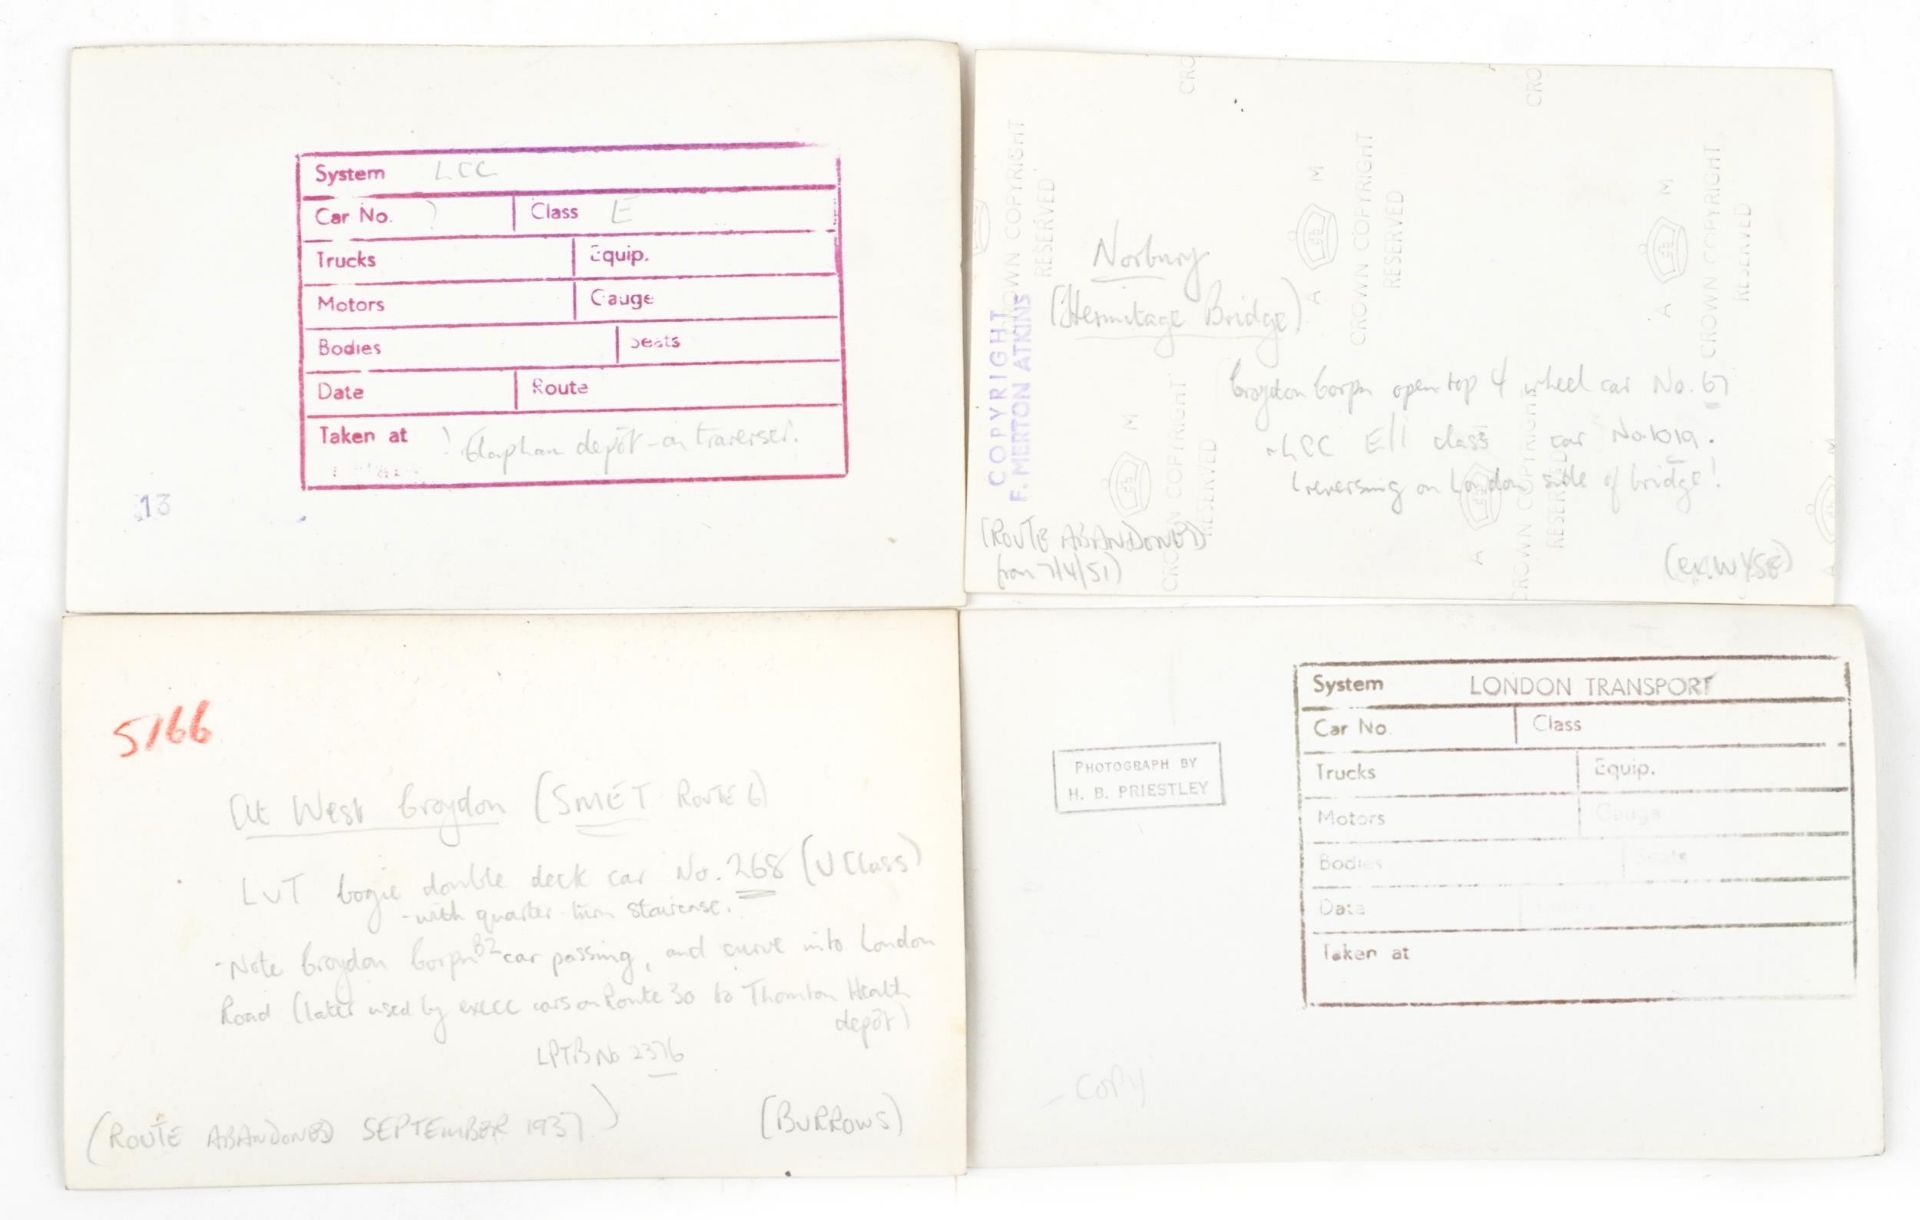 System LCC
Car No. ? Class E
Trucks Equip.
Motors Gauge
Bodies Seats
Date Route
Taken at ? Clapham depôt - on traverser.
13
Norbury
(Hermitage Bridge)
Croydon Corpn open top 4 wheel car No. 67
- LCC E/1 class car No. 1019.
(reversing on London side of bridge!
(ROUTE ABANDONED
from 7/4/51)
(E.K. WYSE)
COPYRIGHT
F. MERTON ATKINS
CROWN COPYRIGHT
RESERVED
A M
CROWN COPYRIGHT
RESERVED
A M
CROWN COPYRIGHT
RESERVED
A M
CROWN COPYRIGHT
RESERVED
A
CROWN COPYRIGHT
RESERVED
5/66
At West Croydon (SMET ROUTE 6)
LUT bogie double deck car No. 268 (U Class)
- with quarter turn staircase.
- Note Croydon Corpn B2 car passing, and curve into London
Road (later used by exLCC cars on Route 30 to Thornton Heath
depôt)
LPTB No 2376
(ROUTE ABANDONED SEPTEMBER 1937)
(BURROWS)
PHOTOGRAPH BY
H. B. PRIESTLEY
System LONDON TRANSPORT
Car No. Class
Trucks Equip.
Motors Gauge
Bodies Seats
Date
Taken at
- COPY